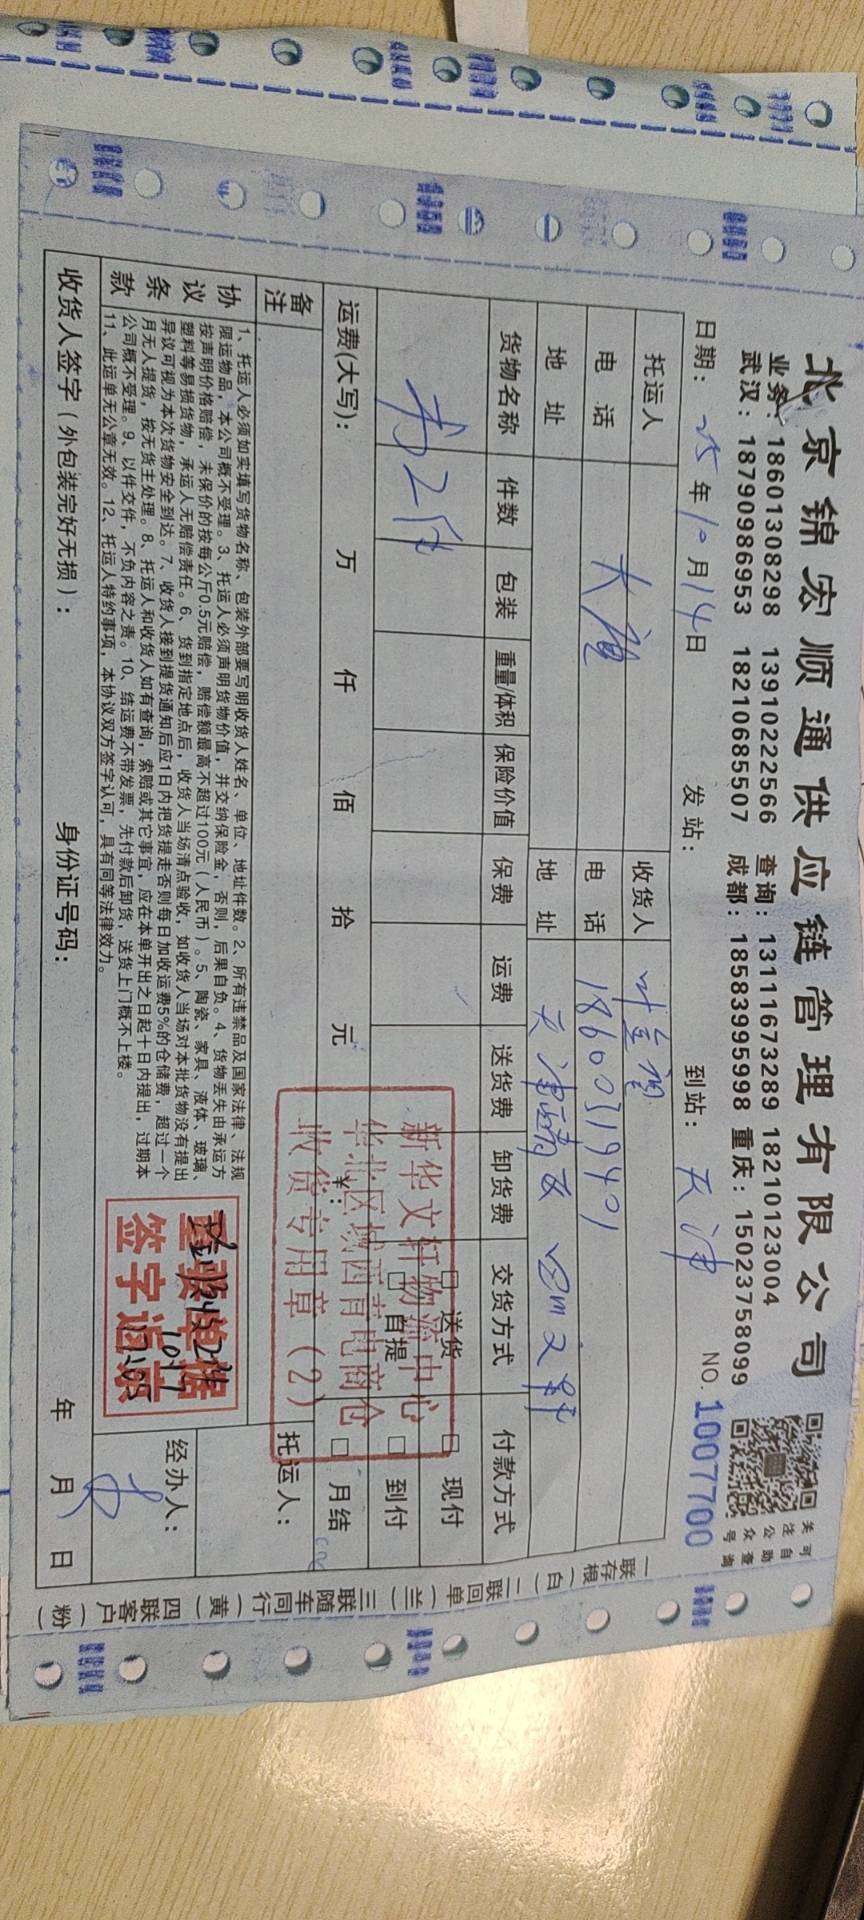 北京锦宏顺通供应链管理有限公司
业务：18601308298 13910222566 查询：13111673289 18210123004
武汉：18790986953 18210685507 成都：18583995998 重庆：15023758099
关注公众号
可自助查询
日期：25年10月14日 发站： 到站：天津 NO.1007700
托运人 收货人
电话 电话 18600319401
地址 地址 天津 文轩
货物名称 件数 包装 重量/体积 保险价值 保费 运费 送货费 卸货费 交货方式 付款方式
书 2件
□送货 □自提
□现付 □到付 □月结
运费(大写)： 万 仟 佰 拾 元 ¥：
备注
托运人：
新华文轩物流中心
华北区域西青电商仓
收货专用章(2)
协议条款
1、托运人必须如实填写货物名称、包装外部要写明收货人姓名、单位、地址件数。2、所有违禁品及国家法律、法规
限运物品，本公司概不受理。3、托运人必须声明货物价值，并交纳保险金，否则，后果自负。4、货物丢失由承运方
按声明价格赔偿，未保价的按每公斤0.5元赔偿，赔偿额最高不超过100元（人民币）。5、陶瓷、家具、液体、玻璃、
塑料等易损货物，承运人无赔偿责任。6、货到指定地点后，收货人当场请点验收，如收货人当场对本批货物没有提出
异议可视为本次货物安全到达。7、收货人接到提货通知后应1日内把货提走否则每日加收运费5%的仓储费，超过一个
月无人提货，按无货主处理。8、托运人和收货人如有查询，索赔或其它事宜，应在本单开出之日起十日内提出，过期本
公司概不受理。9、以件交件，不负内容之责。10、结运费不带发票，先付款后卸货，送货上门概不上楼。
11、此运单无公章无效。12、托运人特约事项，本协议双方签字认可，具有同等法律效力。
签字返京
10.17
经办人：
收货人签字（外包装完好无损）： 身份证号码： 年 月 日
一联存根（白）二联回单（兰）三联随车同行（黄）四联客户（粉）